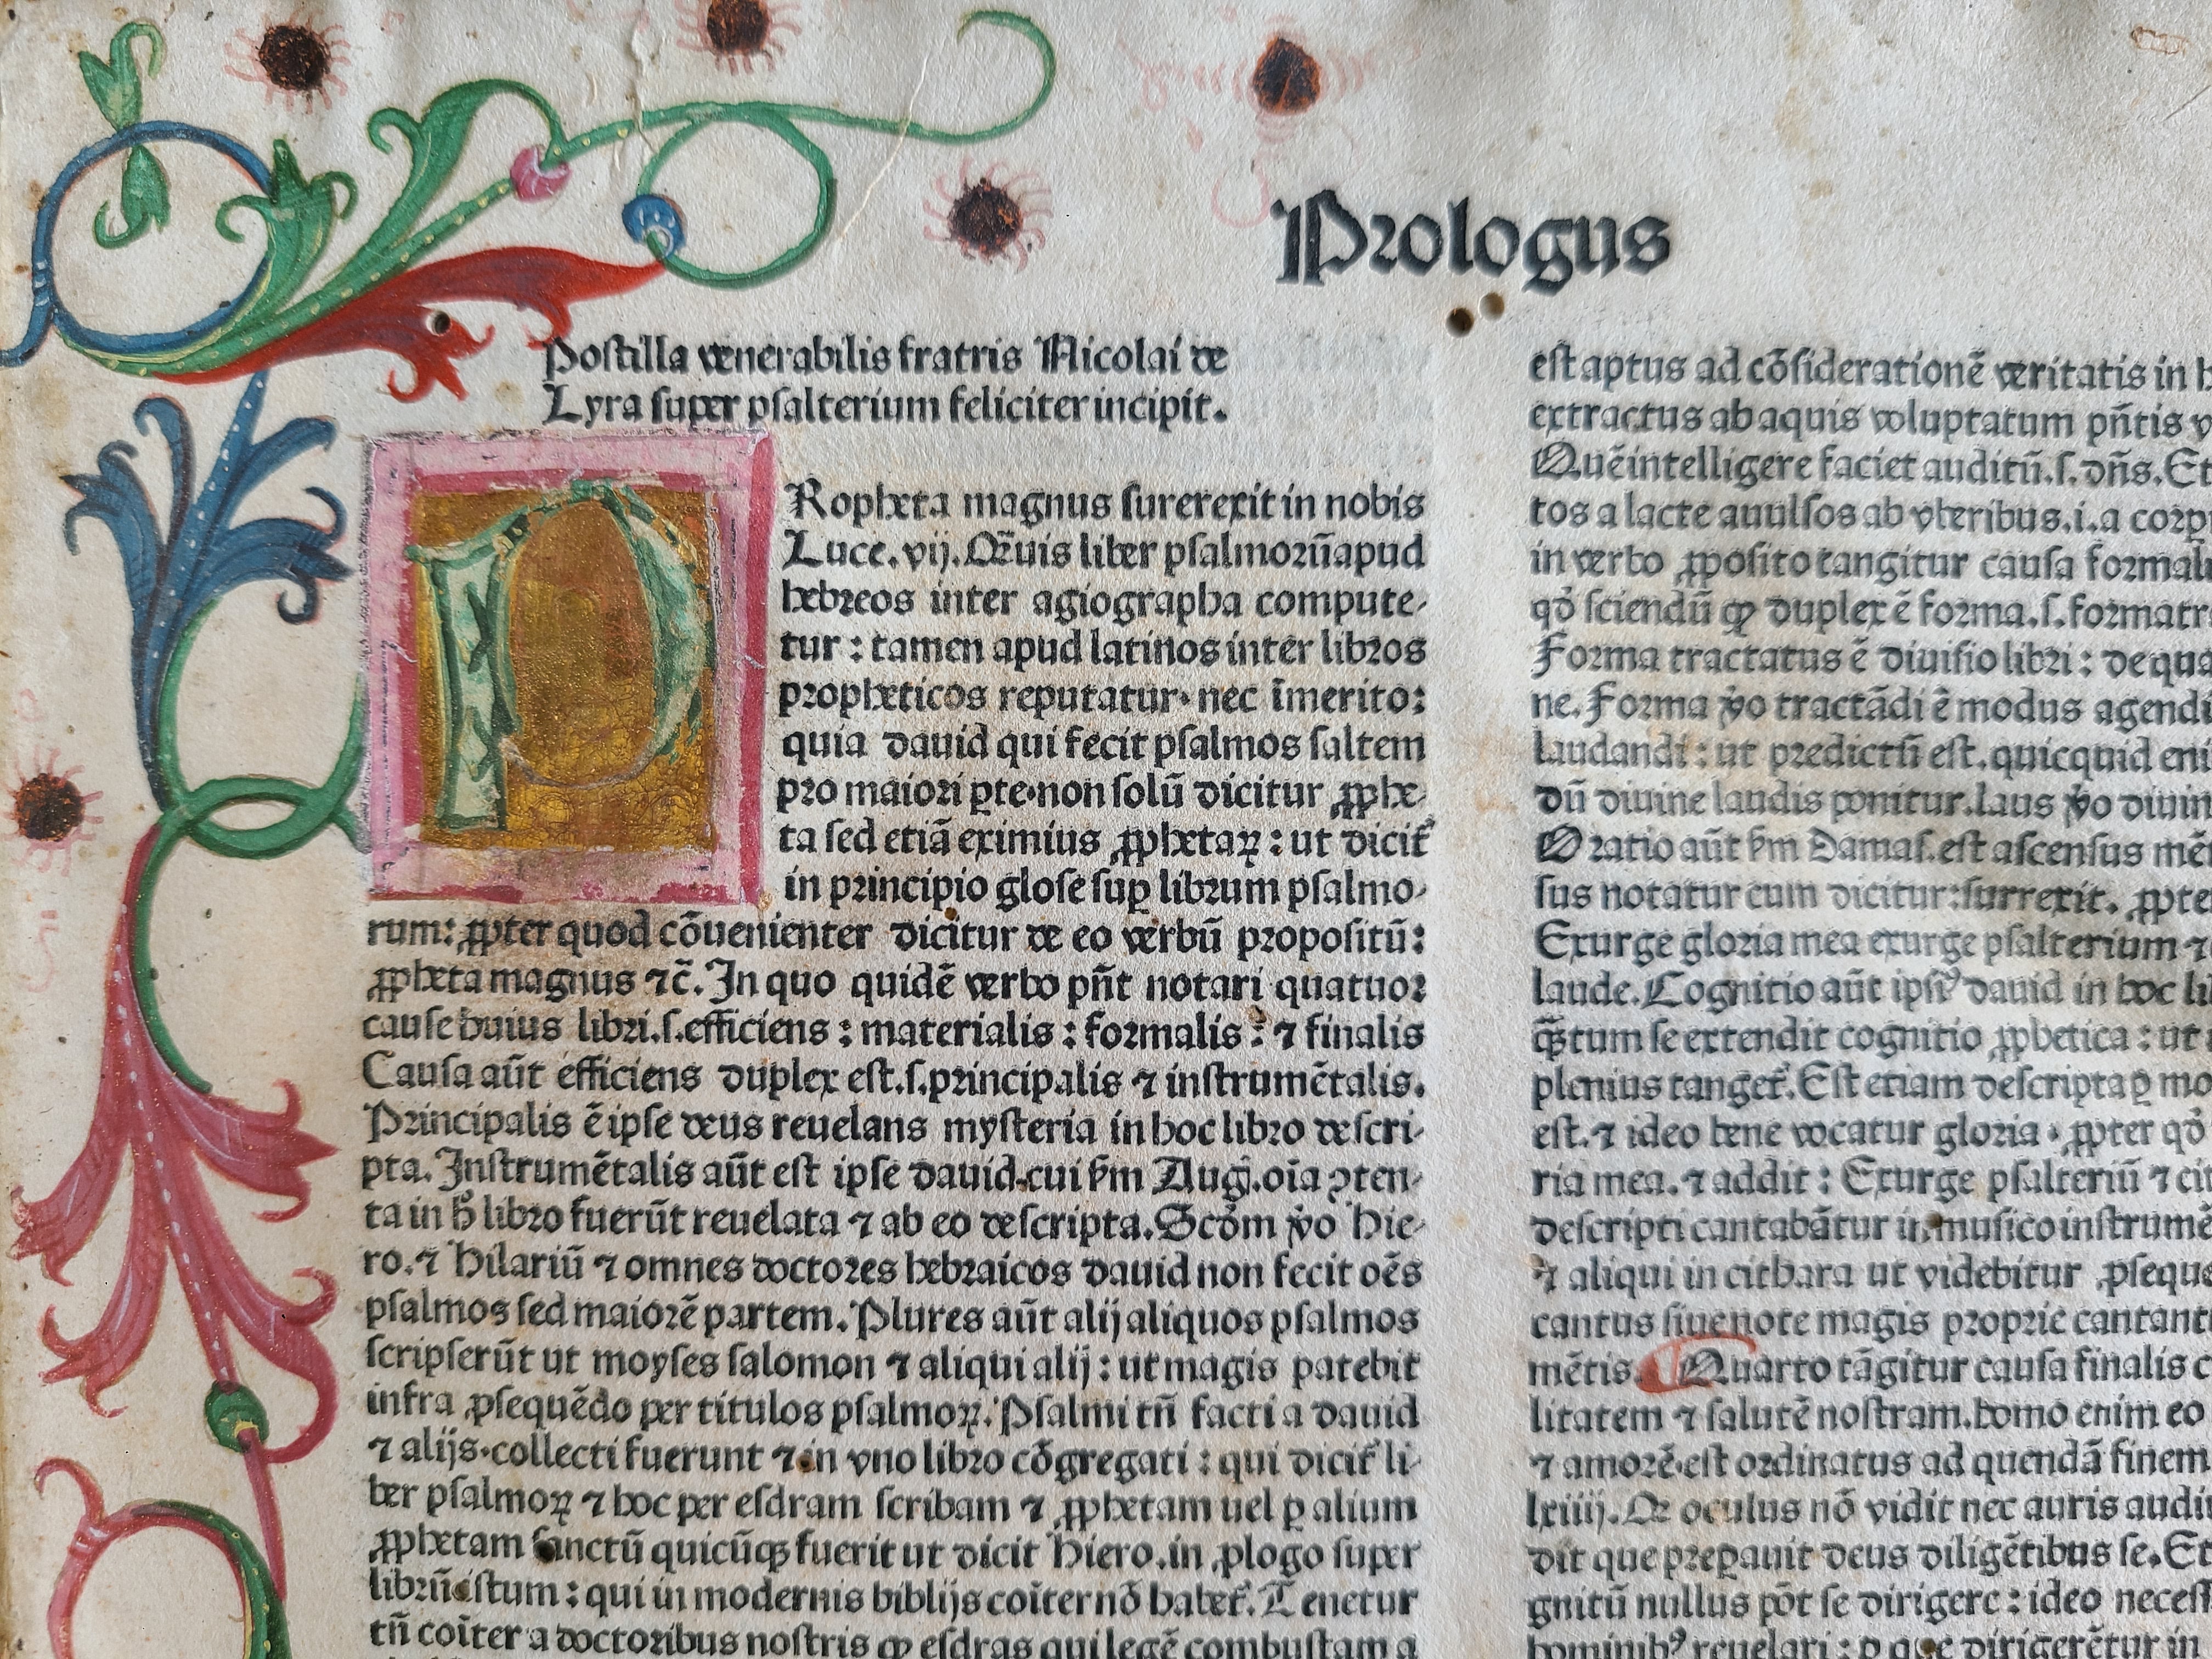 Prologus
Postilla venerabilis fratris Nicolai de
Lyra super psalterium feliciter incipit.
PRopheta magnus surerexit in nobis
Luce. vij. Qꝫuis liber psalmoꝛū apud
hebꝛeos inter agiographa compute⸗
tur : tamen apud latinos inter libꝛos
pꝛopheticos reputatur. nec īmerito:
quia dauid qui fecit psalmos saltem
pꝛo maioꝛi ꝑte. non solū dicitur ꝓphe⸗
ta sed etiā eximius ꝓphetaꝝ : ut dicit᷑
in pꝛincipio glose suꝑ libꝛum psalmo⸗
rum: ꝓpter quod cōuenienter dicitur de eo verbū pꝛopositū:
ꝓpheta magnus ⁊c̄. In quo quidē verbo pn̄t notari quatuoꝛ
cause huius libꝛi.s. efficiens : materialis : foꝛmalis : ⁊ finalis
Causa aūt efficiens duplex est.s. pꝛincipalis ⁊ instrumētalis.
Pꝛincipalis ē ipse deus reuelans mysteria in hoc libꝛo descri⸗
pta. Instrumētalis aūt est ipse dauid. cui ẜm Aug̃. oīa ꝯten⸗
ta in h̄ libꝛo fuerūt reuelata ⁊ ab eo descripta. Scd̄m ṽo Hie⸗
ro. ⁊ Hilariū ⁊ omnes doctoꝛes hebꝛaicos dauid non fecit oēs
psalmos sed maioꝛē partem. Plures aūt alij aliquos psalmos
scripserūt ut moyses salomon ⁊ aliqui alij : ut magis patebit
infra ꝓsequēdo per titulos psalmoꝝ. Psalmi tn̄ facti a dauid
⁊ alijs. collecti fuerunt ⁊ in vno libꝛo cōgregati : qui dicit᷑ li⸗
ber psalmoꝝ ⁊ hoc per esdram scribam ⁊ ꝓphetam uel ꝑ alium
ꝓphetam sanctū quicūqꝫ fuerit ut dicit Hiero. in ꝓlogo super
libꝛū istum : qui in modernis biblijs coīter nō habet᷑. Tenetur
tn̄ coīter a doctoꝛibus nostris ꝙ esdras qui legē combustam a
est aptus ad cōsiderationē veritatis in
extractus ab aquis voluptatum pn̄tis
Quē intelligere faciet auditū.s. dn̄s. Et
tos a lacte auulsos ab vberibus.i. a
in verbo ꝓposito tangitur causa
qd̄ sciendū ꝙ duplex ē foꝛma.s.
Foꝛma tractatus ē diuisio libꝛi : de qua
ne. Foꝛma ṽo tractādi ē modus agendi
laudandi : ut pꝛedictū est. quicquid
dū diuine laudis ponitur. Laus ṽo
Oꝛatio aūt ẜm Damas. est ascensus
sus notatur cum dicitur : surrexit.
Exurge gloꝛia mea exurge psalterium ⁊
laude. Cognitio aūt ipsiꝰ dauid in hoc
qꝫtum se extendit cognitio ꝓphetica : ut
plenius tanget᷑. Est etiam descripta ꝑ
est. ⁊ ideo bene vocatur gloꝛia. ꝓpter qd̄
ria mea. ⁊ addit : Exurge psalteriū ⁊
descripti cantabātur in musico
⁊ aliqui in cithara ut videbitur
cantus siue note magis pꝛopꝛie
mētis. Quarto tāgitur causa finalis
litatem ⁊ salutē nostram. homo enim eo
⁊ amoꝛē. est oꝛdinatus ad quendā finem
lxiiij. Qꝫ oculus nō vidit nec auris
dit que pꝛeparauit deus diligētibus se. Et
gnitū nullus pōt se dirigere : ideo
hominibꝰ reuelari : dirigerētur in